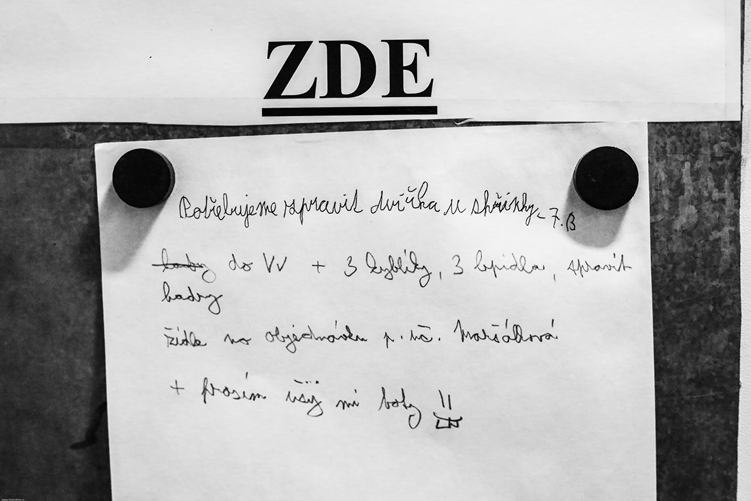 ZDE
Potřebujeme spravit dvířka u skříňky - 7.B
do VV + 3 kyblíky, 3 lepidla, spravit
hadry
židle na objednávku p. uč. Maršálková
+ prosím ušij mi boty !!